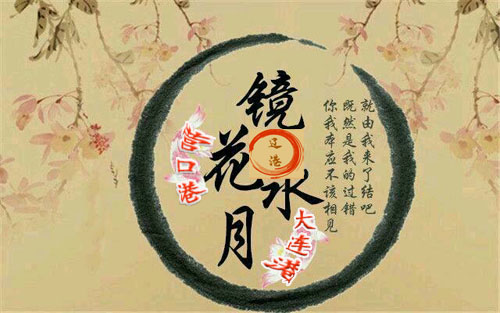 镜花水月
过港
营口港
大连港
就由我来了结吧
既然是我的过错
你我本应不该相见